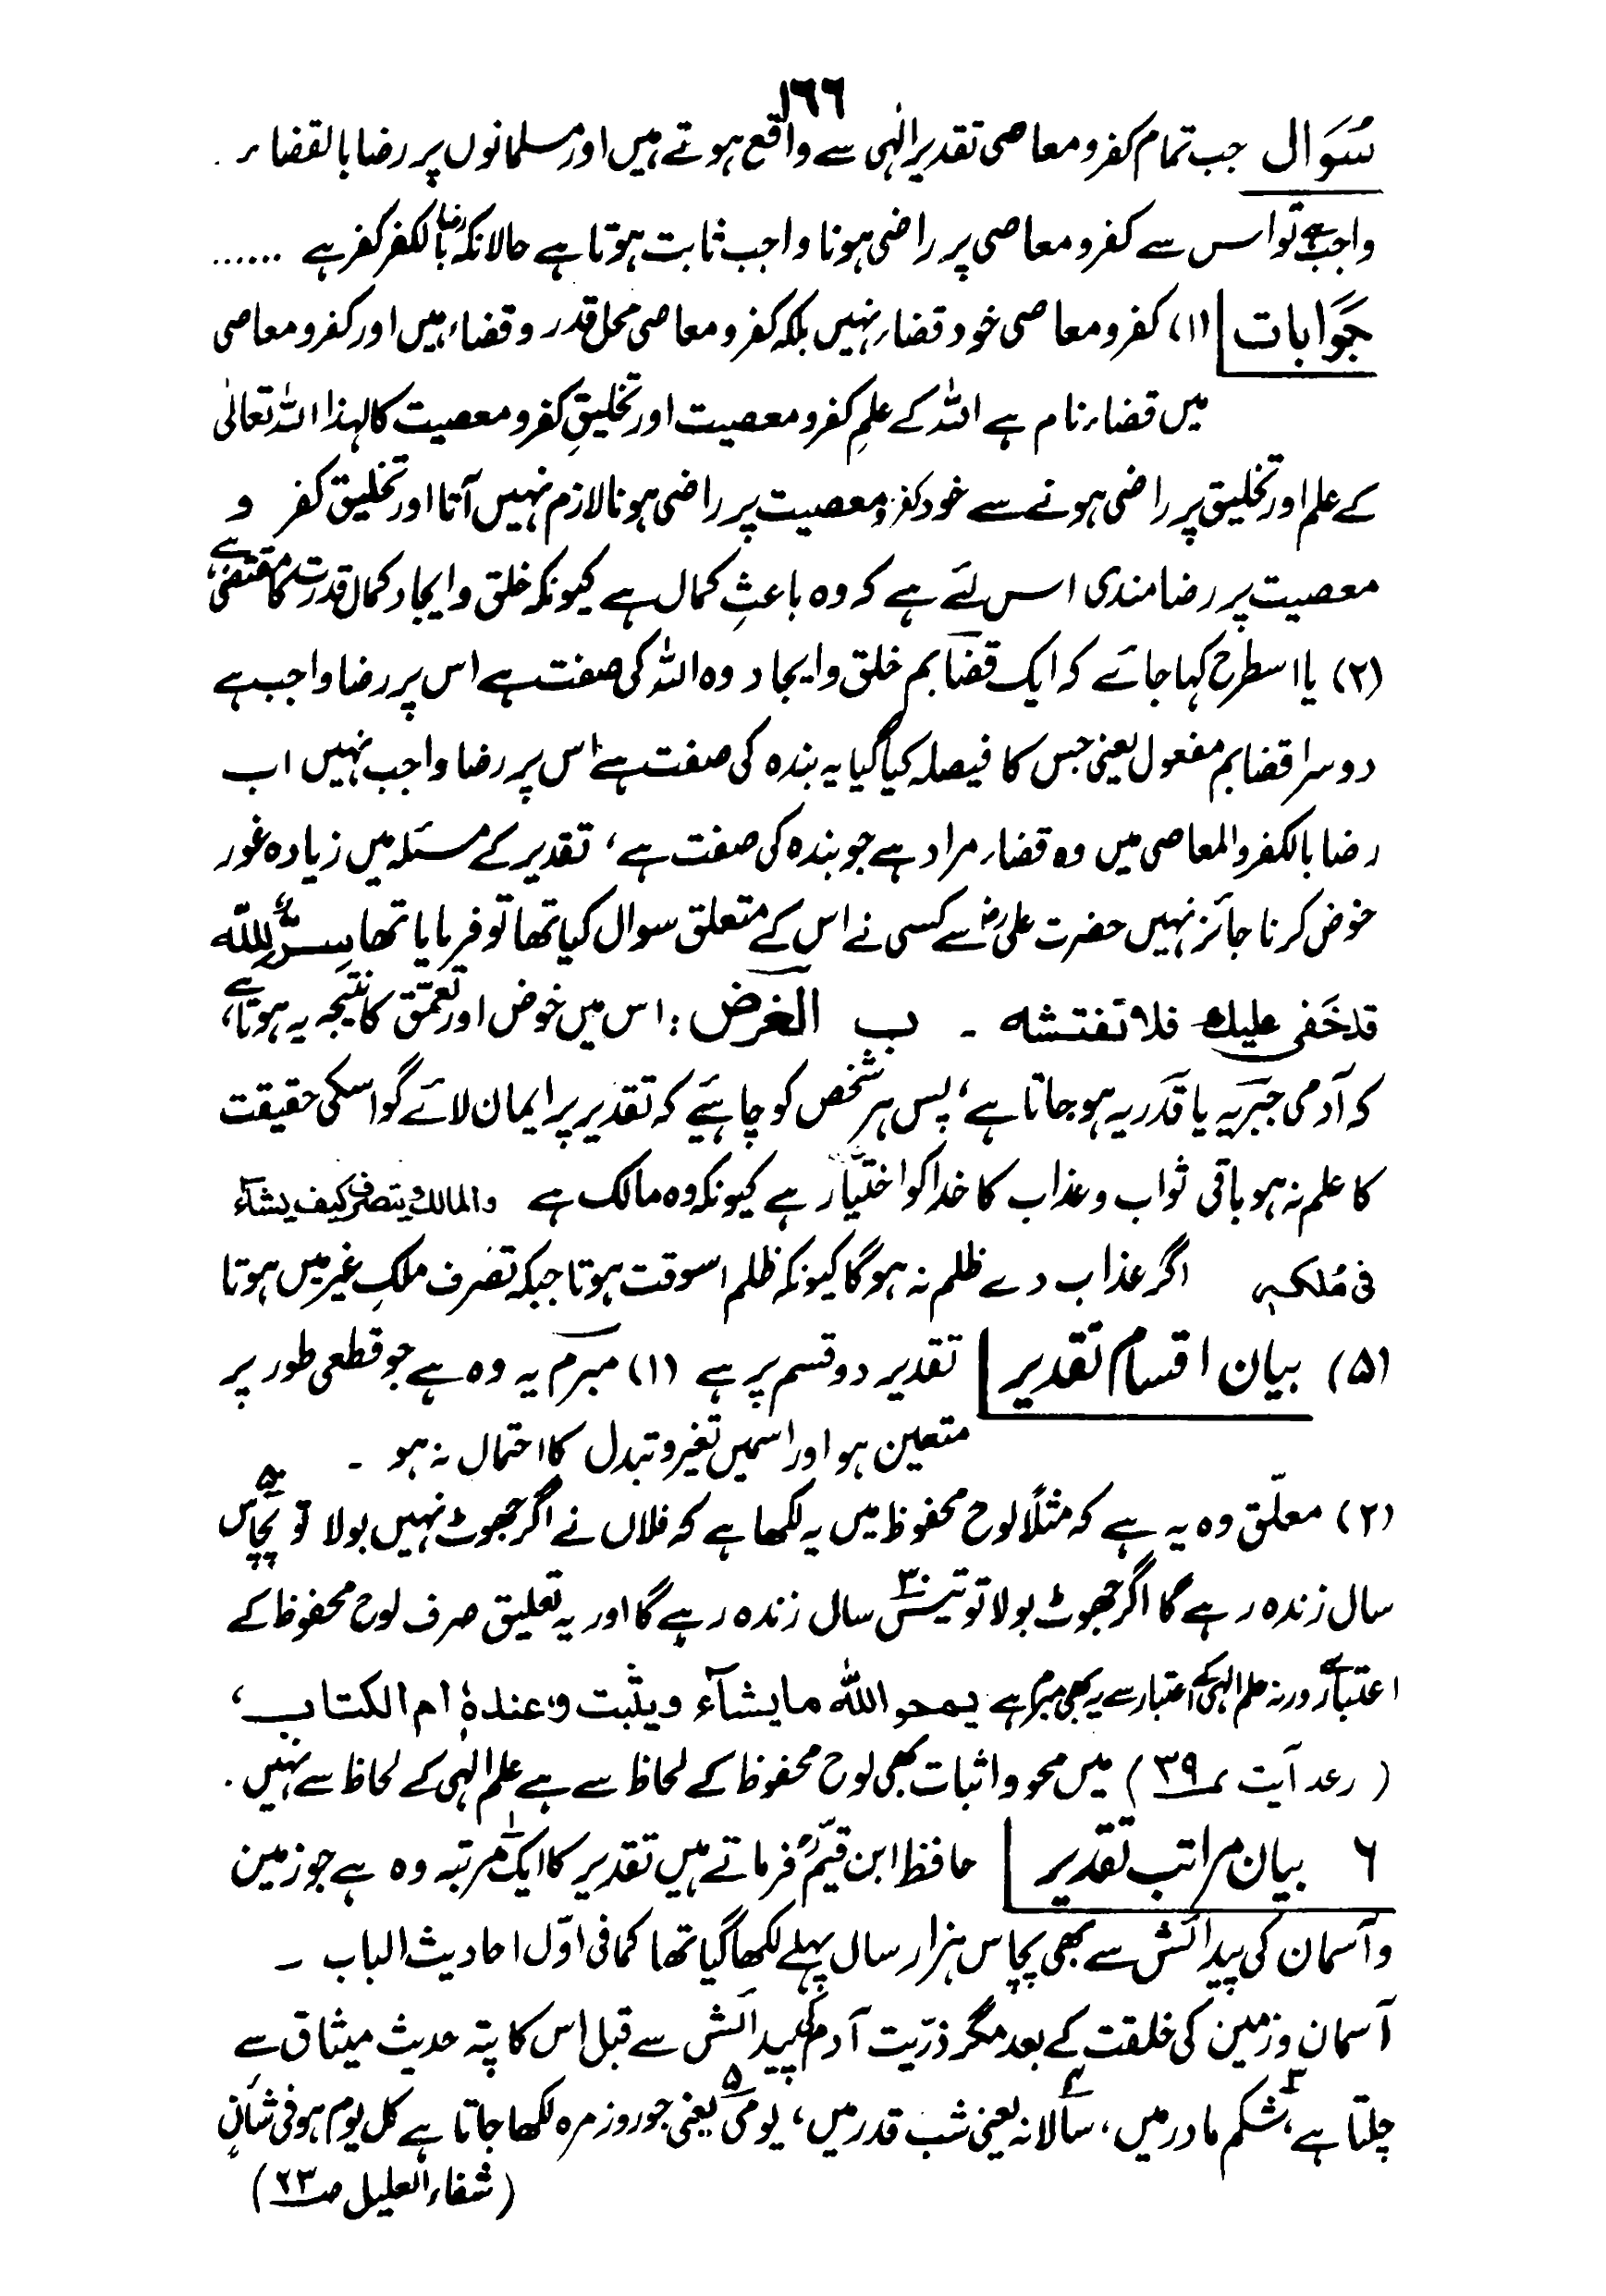 ۱۶۶
سُوَال جب تمام کفر و معاصی تقدیر الٰہی سے واقع ہوتے ہیں اور مسلمانوں پر رضا بالقضاء
واجب ہے تو اس سے کفر و معاصی پر راضی ہونا واجب ثابت ہوتا ہے حالانکہ رضا بالکفر کفر ہے ......
جَوَابات (۱) کفر و معاصی خود قضاء نہیں بلکہ کفر و معاصی محل قدر و قضاء ہیں اور کفر و معاصی
میں قضاء نام ہے اللہ کے علمِ کفر و معصیت اور تخلیقِ کفر و معصیت کا لہذا اللہ تعالیٰ
کے علم اور تخلیق پر راضی ہونے سے خود کفر و معصیت پر راضی ہونا لازم نہیں آتا اور تخلیق کفر و
معصیت پر رضامندی اس لئے ہے کہ وہ باعثِ کمال ہے کیونکہ خلق و ایجاد کمال قدرت کا مقتضی ہے،
(۲) یا اسطرح کہا جائے کہ ایک قضا بم خلق و ایجاد وہ اللہ کی صفت ہے اس پر رضا واجب ہے
دوسرا قضا بم مفعول یعنی جس کا فیصلہ کیا گیا یہ بندہ کی صفت ہے اس پر رضا واجب نہیں اب
رضا بالکفر والمعاصی میں وہ قضاء مراد ہے جو بندہ کی صفت ہے، تقدیر کے مسئلہ میں زیادہ غور
خوض کرنا جائز نہیں حضرت علیؓ سے کسی نے اس کے متعلق سوال کیا تھا تو فرمایا تھا سِرٌّ لِلّٰہ
قد خَفی علیك فلا تفتشه ۔ ب الغرض : اس میں خوض اور تعمّق کا نتیجہ یہ ہوتا ہے،
کہ آدمی جَبَریہ یا قَدَریہ ہو جاتا ہے، پس ہر شخص کو چاہیئے کہ تقدیر پر ایمان لائے گو اسکی حقیقت
کا علم نہ ہو باقی ثواب و عذاب کا خدا کو اختیار ہے کیونکہ وہ مالک ہے والمالك يتصرف كيف يشآء
فی مُلکہٖ اگر عذاب دے ظلم نہ ہوگا کیونکہ ظلم اسوقت ہوتا جبکہ تصرف ملکِ غیر میں ہوتا
(۵) بیان اقسام تقدیر تقدیر دو قسم پر ہے (۱) مبرم یہ وہ ہے جو قطعی طور پر
متعین ہو اور اسمیں تغیر و تبدل کا احتمال نہ ہو ۔
(۲) معلّق وہ یہ ہے کہ مثلاً لوح محفوظ میں یہ لکھا ہے کہ فلاں نے اگر جھوٹ نہیں بولا تو پچاس ۵۰
سال زندہ رہے گا اگر جھوٹ بولا تو تیس ۳۰ سال زندہ رہے گا اور یہ تعلیق صرف لوح محفوظ کے
اعتبار سے ورنہ علم الٰہی کے اعتبار سے یہ بھی مبرم ہے يمحو الله ما يشآء ويثبت وعندهٗ ام الكتاب،
( رعد آیت ۳۹ ) میں محو و اثبات بھی لوح محفوظ کے لحاظ سے ہے علم الٰہی کے لحاظ سے نہیں ۔
۶ بیان مراتب تقدیر حافظ ابن قیمؒ فرماتے ہیں تقدیر کا ایک ۱ مرتبہ وہ ہے جو زمین
و آسمان کی پیدائش سے بھی پچاس ہزار سال پہلے لکھا گیا تھا کما فی اوّل احادیث الباب ۔
آسمان و زمین کی خلقت کے بعد مگر ذرّیت آدم کی پیدائش سے قبل اس کا پتہ حدیث میثاق سے
چلتا ہے، ۳ شکم مادر میں، ۴ سالانہ یعنی شب قدر میں، ۵ یومی یعنی جو روز مرہ لکھا جاتا ہے کل یوم ہو فی شأنٍ
(شفاء العلیل صـ ۲۳)